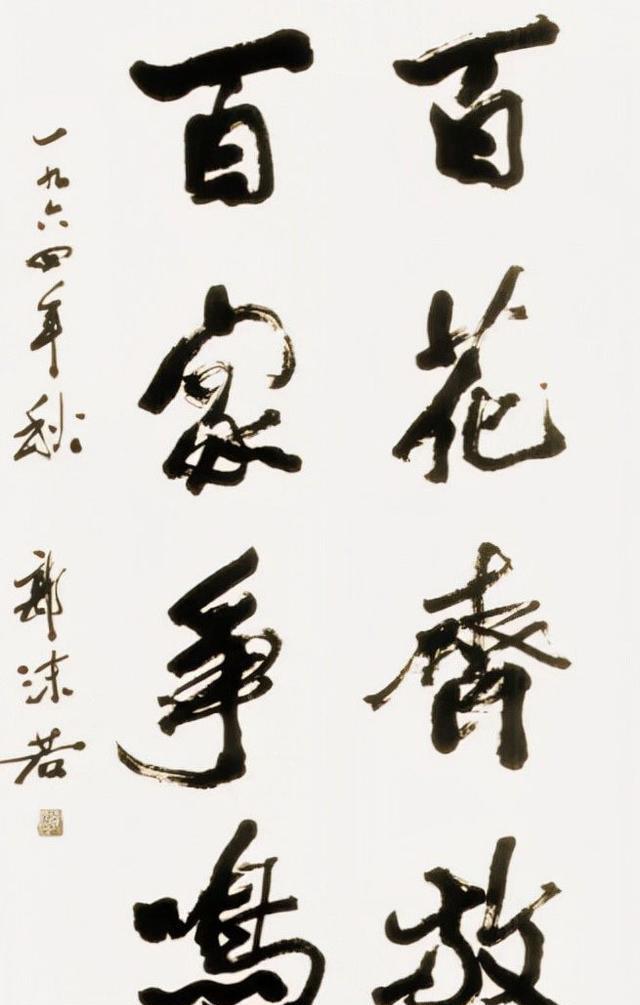 百花齊放
百家爭鳴
一九六四年秋 郭沫若